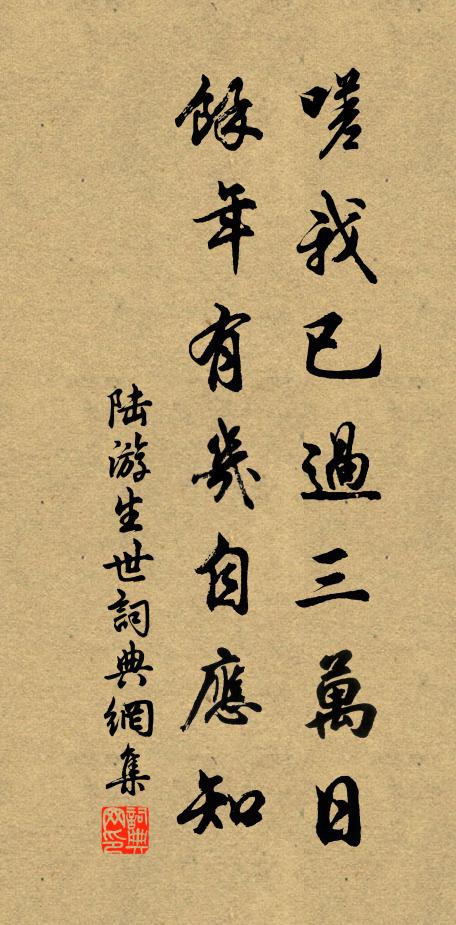 嗟我已過三萬日
餘年有幾自應知
陆游生世詞典網集
詞典網印